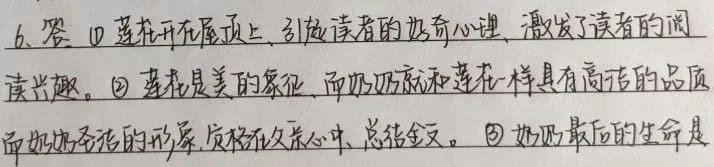 6、答 ① 莲花开在屋顶上、引起读者的好奇心理、激发了读者的阅
读兴趣。② 莲花是美的象征、而奶奶就和莲花一样具有高洁的品质
而奶奶圣洁的形象,定格在父亲心中、总结全文。③ 奶奶最后的生命是